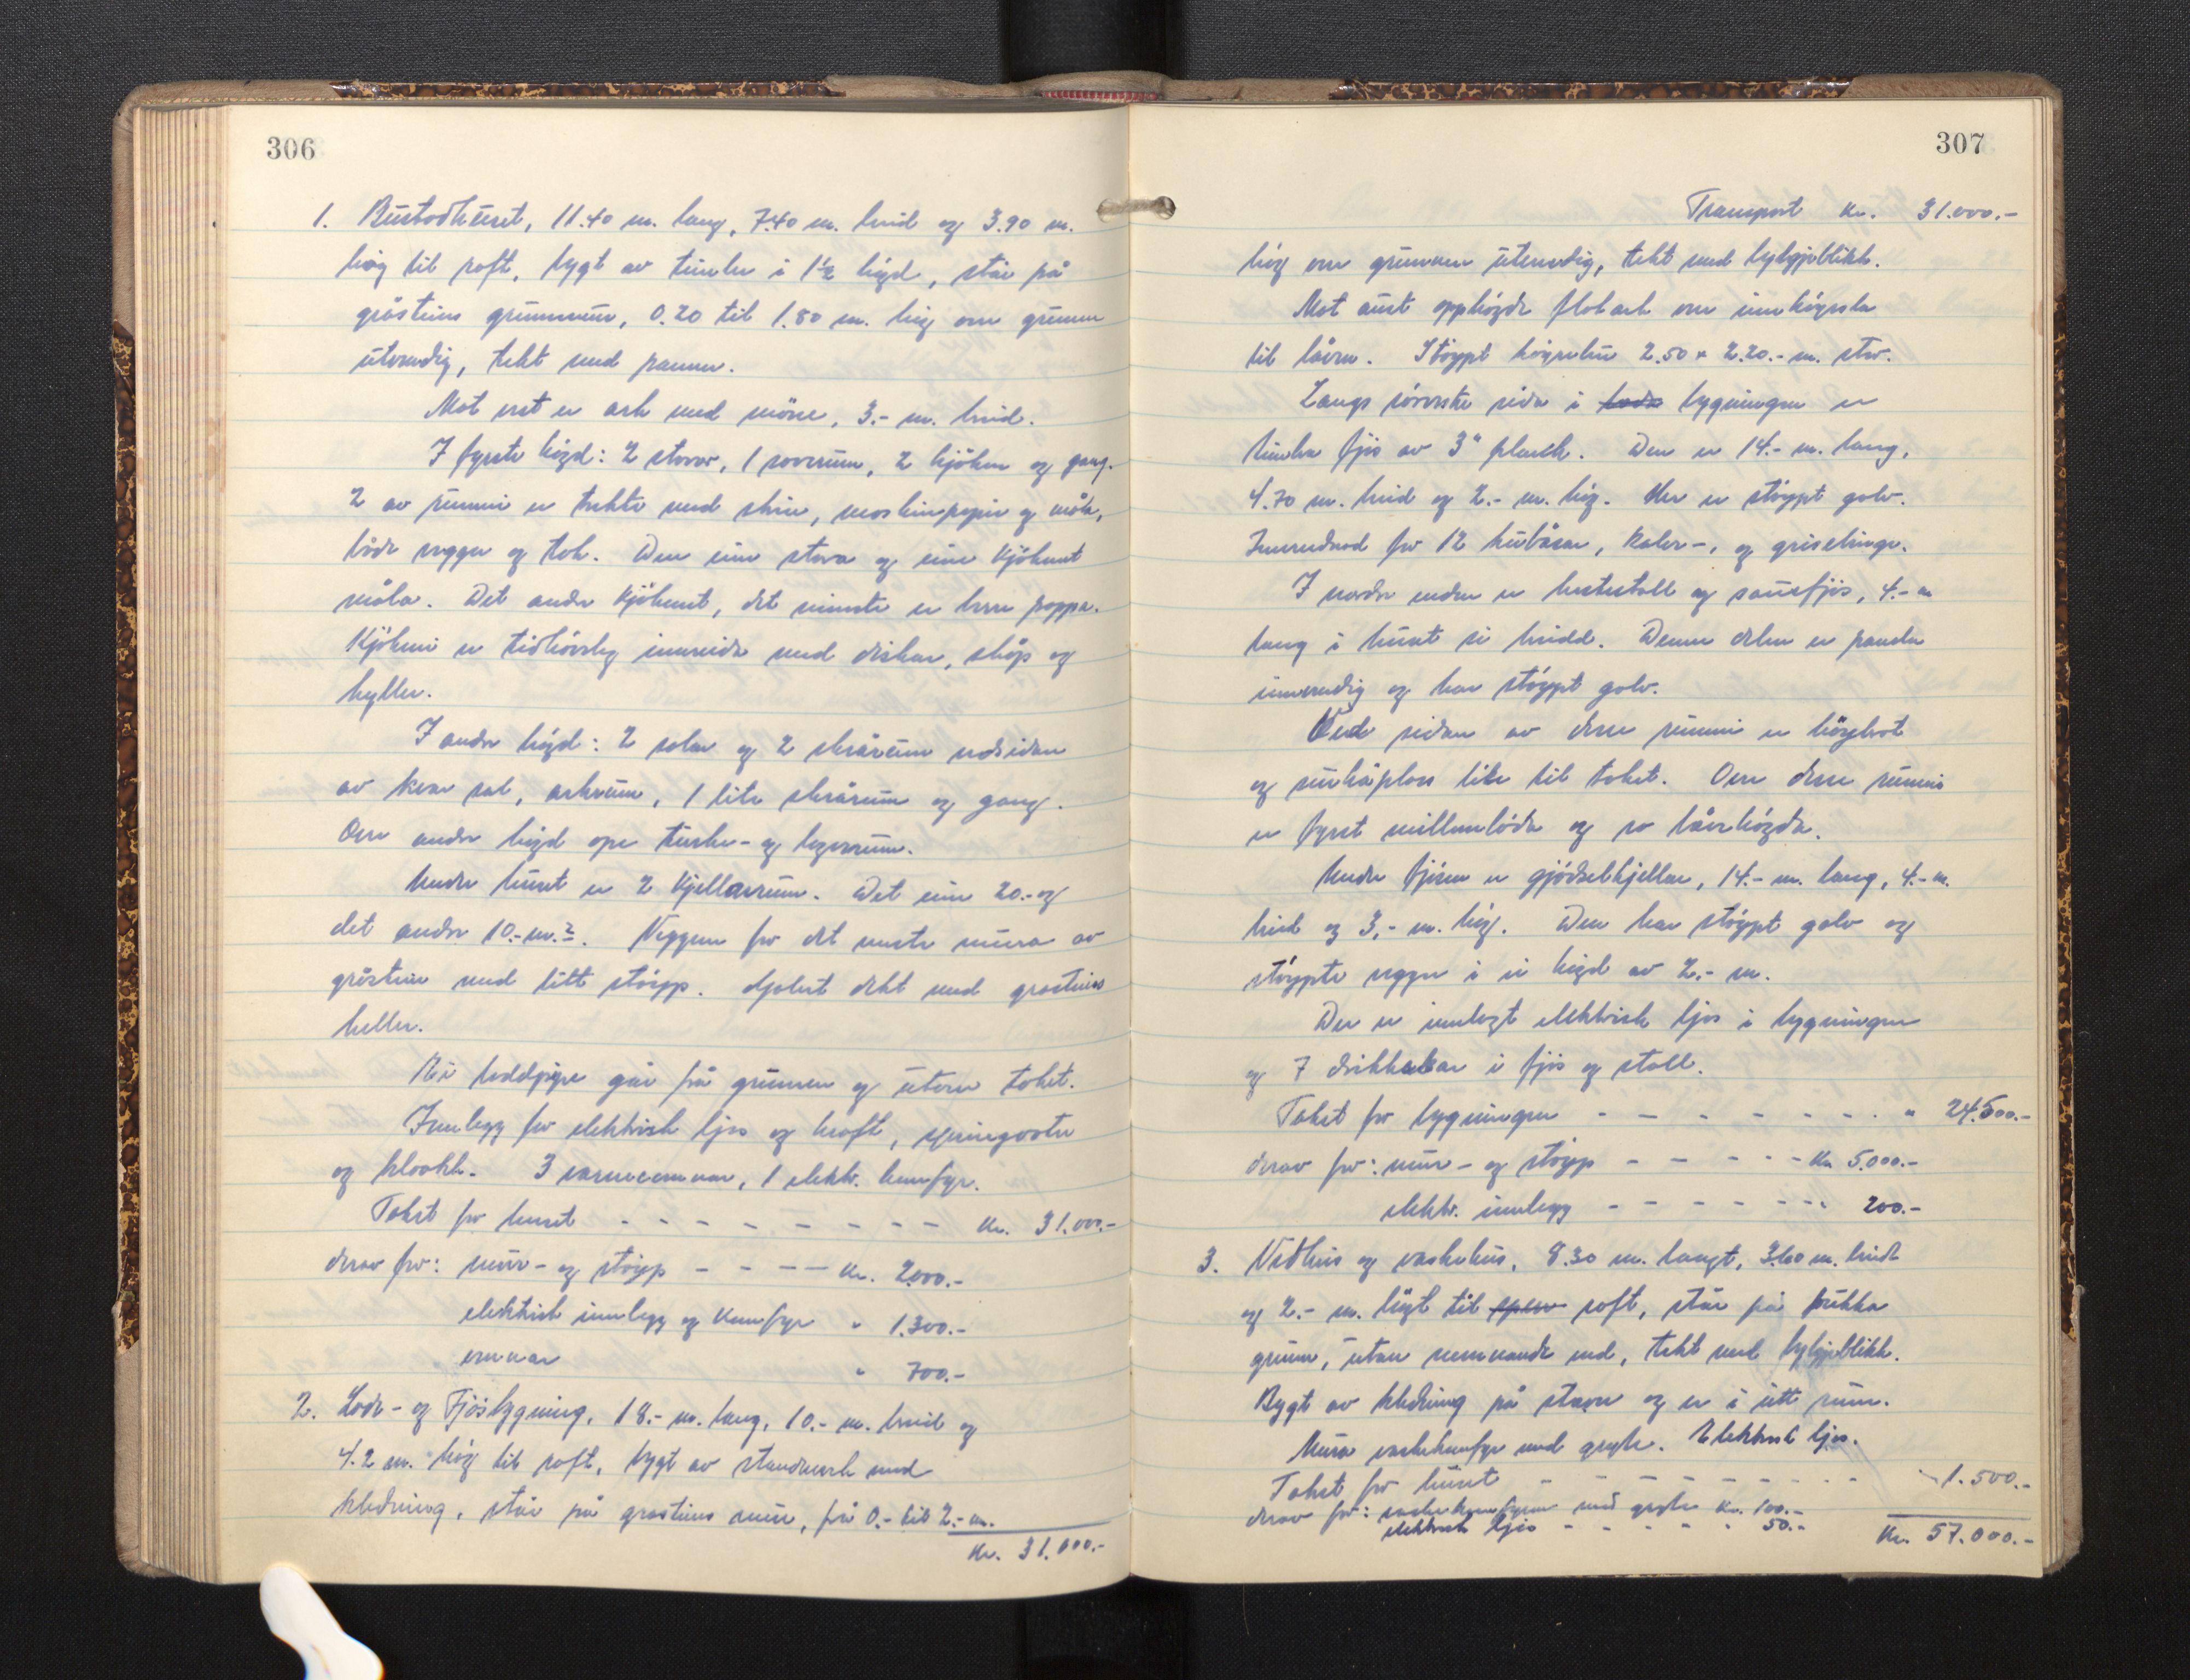 306
1. Bustadhuset, 11.40 m. lang, 7.40 m. breid og 3.90 m.
høg til roft, bygt av timber i 1½ høgd, står på
gråsteins grunnmur, 0.20 til 1.80 m. høg over grunnen
utvendig, tekt med pannen.
Mot vest er ark med møne, 3.- m. breid.
I fyrste høgd: 2 stover, 1 soverum, 2 kjøken og gang.
2 av rummi er trekte med strie, maskinpapir og måla,
både vegger og tak. Den eine stova og eine kjøkenet
måla. Det andre kjøkenet, det minste er berre pappa.
Kjøkeni er tidhøveleg innreidde med diskar, skåp og
hyller.
I andre høgd: 2 salar og 2 skrårum vedsidan
av kvar sal, arkrum, 1 lite skrårum og gang.
Over andre høgd ope turke- og lagerrum.
Under huset er 2 kjellarrum. Det eine 20.- og
det andre 10.- m.². Veggen for det meste mura av
gråstein med litt støyp. Golvet dekt med grasteins
heller.
Ei loddpipe går frå grunnen og utover taket.
Innlegg for elektrisk ljos og kraft, springvatn
og kloakk. 3 varmeomnar, 1 elektr. komfyr.
Takst for huset - - - - - - - - - kr. 31.000.-
derav for: mur- og støyp - - - - kr. 2000.-
elektrisk innlegg og komfyr " 1.300.-
omnar " 700.-
2. Løde- og Fjøsbygning, 18.- m. lang, 10.- m. breid og
4.2 m. høg til roft, bygt av standverk med
kledning, står på grasteins mur, frå 0.- til 2.- m.
kr. 31.000.-
307
Transport kr. 31.000.-
høg over grunnen utvendig, tekt med bylgjeblikk.
Mot aust opphøgde flatark over innkøyrsla
til låven. Støypt køyrebru 2.50 x 2.20.- m. stor.
Langs søreste sida i løda bygningen er
timbra fjøs av 3" plank. Den er 14.- m. lang,
4.70 m. breid og 2.- m. høg. Her er støypt golv.
Innreidnad for 12 kubåsar, kalve-, og grisebinge.
I nordre enden er hestestall og sauefjøs, 4.- m
lang i huset si breidd. Denne delen er panela
innvendig og har støypt golv.
Ved sidan av desse rummi er høybrot
og turkeplass like til taket. Over desse rummi
er fyrst millomløda og so låvehøgda.
Under fjøsen er gjødselkjellar, 14.- m. lang, 4.- m.
breid og 3,- m. høg. Den har støypt golv og
støypte vegger i ei høgd av 2.- m.
Der er innlagt elektrisk ljos i bygningen
og 7 drikkekar i fjøs og stall.
Takst for bygningen - - - - - - - - " 24.500.-
derav for: mur- og støyp - - - - - kr 5.000.-
elektr. innlegg - - - - - - - " 200.-
3. Vedhus og vaskehus, 8.30 m. langt, 3.60 m. breidt
og 2.- m. høgt til roft, står på pukka
grunn, utan nemnande ved, tekt med bylgjeblikk.
Bygt av kledning på stavar og er i eitt rum.
Mura vaskekomfyr med gryte. Elektrisk ljos.
Takst for huset - - - - - - - - - " 1.500.-
derav for: vaskekomfyren med gryte kr. 100.-
elektrisk ljos - - - - - " 50.-
kr. 57.000.-